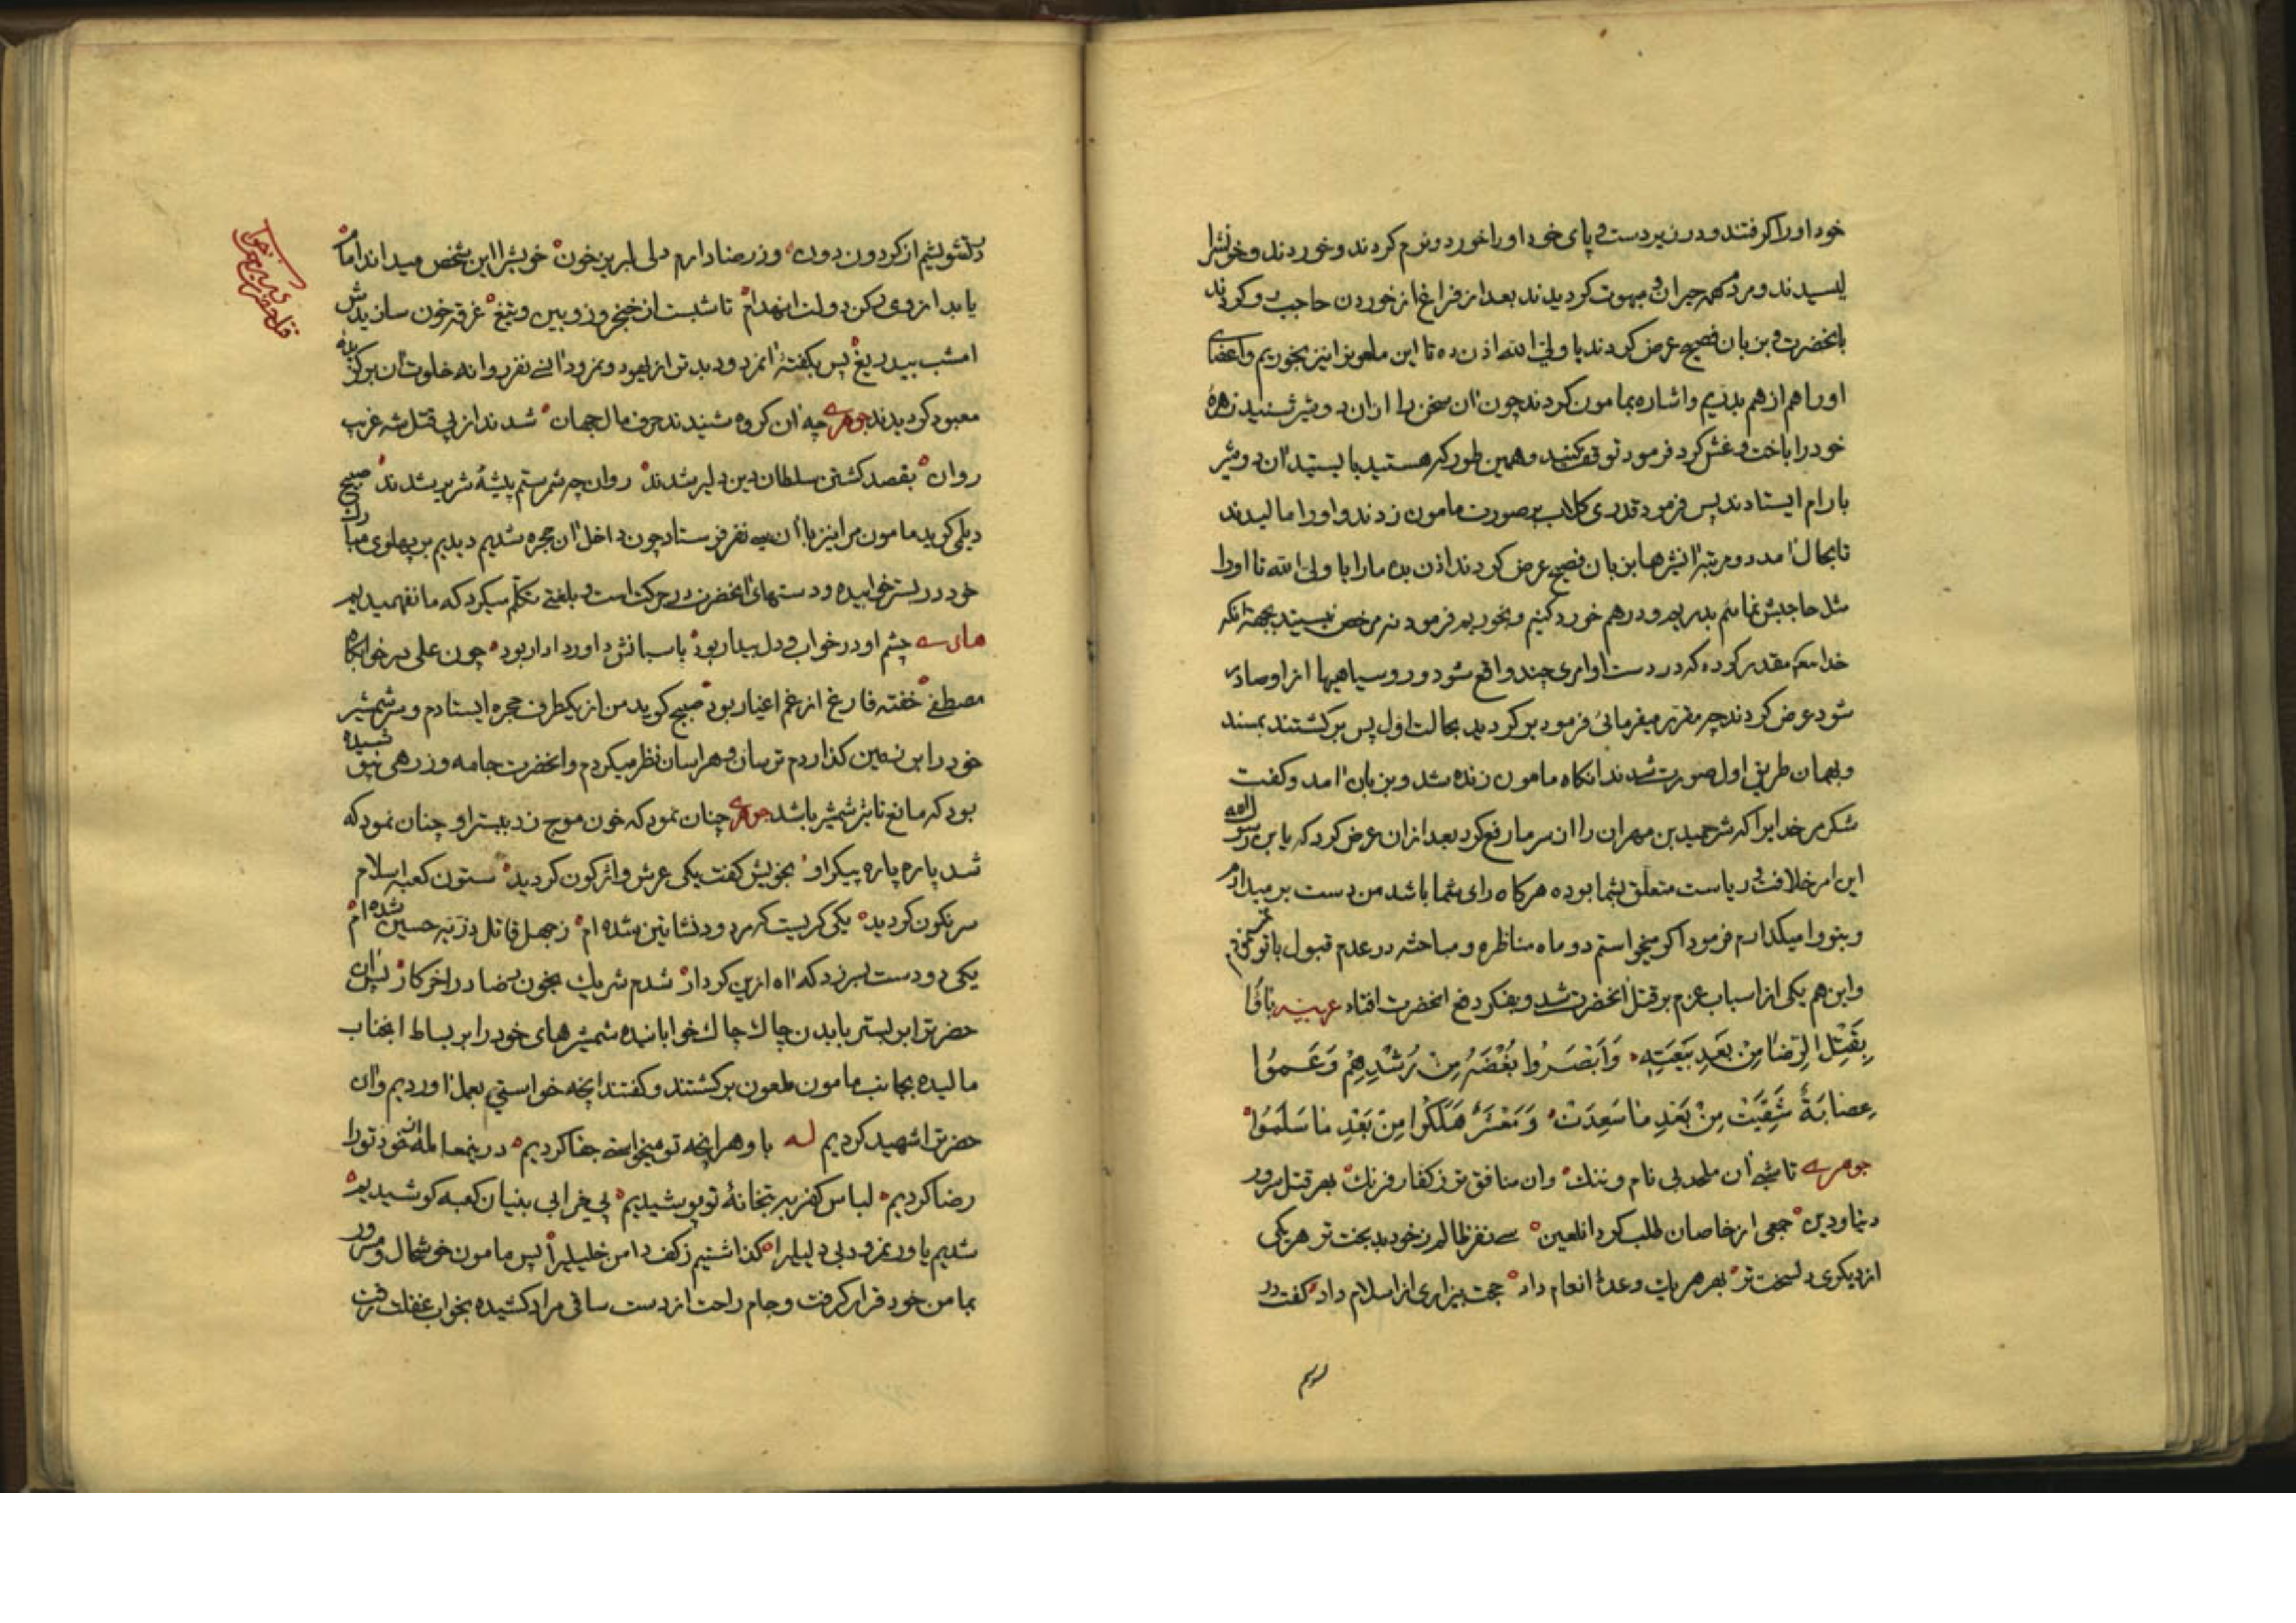 خود اورا کرفتند و در زیر دست و پای خود اورا خورد و نرم کردند و خوردند و خونشرا
لیسیدند و مردم همه حیران و مبهوت کردیدند بعد از فراغ از خوردن حاجب رو کردند
بانحضرت و بزبان فصیح عرض کردند یا ولیّ الله اذن ده تا این ملعونرا نیز بخوریم و اعضای
اورا هم از هم بدریم و اشاره بمامون کردند چون ان سخن را از ان دو شیر شنید زهرهٔ
خود را باخت و غش کرد فرمود توقف کنید و همین طور که هستید بایستید ان دو شیر
بارام ایستادند پس فرمود قدری کلاب بر صورت مامون زدند و اورا مالیدند
تا بحال امد دو مرتبه انشیرها بزبان فصیح عرض کردند اذن بده مارا یا ولی الله تا اورا
مثل حاجبش نمائیم بدریم و در هم خورد کنیم و بخوریم فرمود نه مرخص نیستید بجهة انکه
خدا مقدر کرده که در دست او امری چند واقع شود و روسیاهیها از او صادر
شود عرض کردند چه مقرر میفرمائی فرمود بر کردید بحالت اول پس برکشتند بمسند
و بهمان طریق اول صورت شدند انکاه مامون زنده شد و بزبان امد و کفت
شکر مر خدایرا که شر حمید بن مهران را از سر ما رفع کرد بعد از ان عرض کرد که یابن رسول الله
این امر خلافت و ریاست متعلق بشما بوده هرکاه رای شما باشد من دست بر میدارم
و بتو وا میکذارم فرمود اکر میخواستم دو ماه مناظره و مباحثه در عدم قبول با تو نمیکردم
و این هم یکی از اسباب عزم بر قتل انحضرت شد و بفکر دفع انحضرت افتاد عربیه باؤا
بِقَتْلِ الرِّضَا مِنْ بَعْدِ بَيْعَتِهِ وَاَبْصَرُوا بُغْضَهُ مِنْ رُشْدِهِمْ وَعَمُوا
عِصَابَةٌ شَقِيَتْ مِنْ بَعْدِ مَا سَعِدَتْ وَمَعْشَرٌ هَلَكُوا مِنْ بَعْدِ مَا سَلَمُوا
جوهری تا شبی ان ملحد بی نام و ننک وان منافق تر ز کفار فرنک بهر قتل سرور
دنیا و دین جمعی از خاصان طلب کرد انلعین سی نفر ظالم ز خود بدبخت تر هر یکی
از دیکری دلسخت تر بهر هر یک وعدهٔ انعام داد حجت بیزاری از اسلام داد کفت در
دلتشویشیم از کردون دون وز رضا دارم دلی لبریز خون خویشرا این شخص میداند امام
یابد از وی رکن دولت انهدام تا شبست از خنجر و زوبین و تیغ غرقه خون سازیدش
امشب بیدریغ پس بکفتهٔ انمردود بدتر از یهود و نمرود انسی نفر روانه خلوت ان برکزیدهٔ
معبود کردیدند جوهری چه ان کروه شنیدند حرف مال جهان شدند از پی قتل شه غریب
روان بقصد کشتن سلطان دین دلیر شدند روان چه شمر ستم پیشهٔ شریر شدند صبیح
دیلمی کوید مامون مرا نیز با ان سی نفر فرستاد چون داخل ان حجره شدیم دیدیم بر پهلوی مبارک
خود در بستر خوابیده و دستهای انحضرت در حرکت است و بلغتی تکلّم میکرد که ما نفهمیدیم
چشم او در خواب و دل بیدار بود پاسبانش داور دادار بود چون علی در خوابکاه
مصطفی خفته فارغ از غم اغیار بود صبیح کوید من از یکطرف حجره ایستادم و سر شمشیر
خود را بر زمین کذاردم ترسان و هراسان نظر میکردم و انحضرت جامه و زرهی نپوشیده
بود که مانع تاثیر شمشیر باشد جوهری چنان نمود که خون موج زد ببستر او چنان نمود که
شد پاره پاره پیکر او بخویش کفت یکی عرش واژکون کردید ستون کعبه اسلام
سرنکون کردید یکی کریست که مردود نشاتین شده ام ز جهل قاتل ذرّیه حسین شده ام
یکی دو دست بسر زد که اه ازین کردار شدم شریک بخون رضا در اخر کار پس ان
حضرترا بر بستر با بدن چاک چاک خوابانیده شمشیرهای خود را بر بساط انجناب
مالیده بجانب مامون ملعون برکشتند و کفتند انچه خواستی بعمل اوردیم وان
حضرترا شهید کردیم له با و هر انچه تو میخواستی جفا کردیم در ینمعامله از خود تورا
رضا کردیم لباس کفر به بتخانهٔ تو پوشیدیم پی خرابی بنیان کعبه کوشیدیم
شدیم یاور نمرود بی دلیلیرا کذاشتیم ز کف دامن خلیلیرا پس مامون خوشحال و مسرور
بمامن خود قرار کرفت و جام راحت از دست ساقی مراد کشیده بخواب غفلت رفت